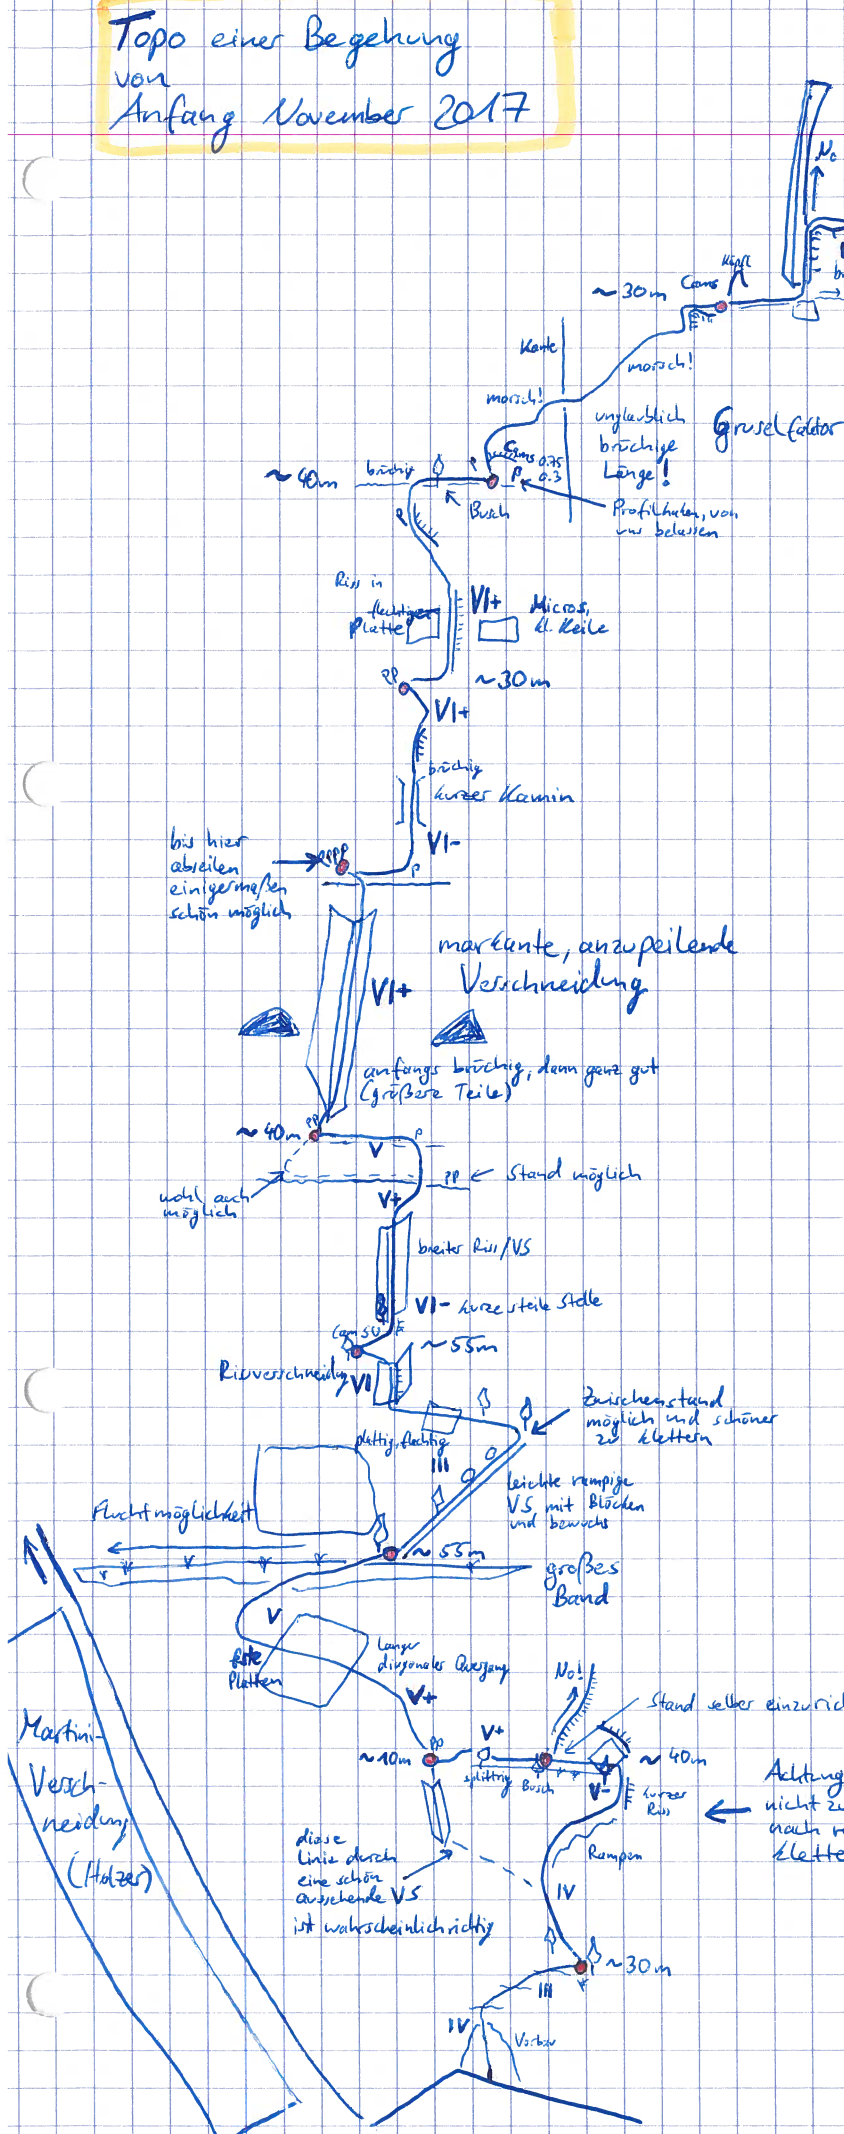 Topo einer Begehung
von
Anfang November 2017
No
Köpfl
Cams
~30m
b
Kante
morsch!
morsch!
unglaublich
brüchige
Länge!
Gruselfaktor
~40m
brüchig
P
Cams 0.75
0.3
P
Busch
Profilhaken, von
uns belassen
P
Riss in
flechtiger
Platte
VI+
Micros,
kl. Keile
PP
~30m
VI+
brüchig
kurzer Kamin
VI-
P
bis hier
abseilen
einigermaßen
schön möglich
PPPP
markante, anzupeilende
Verschneidung
VI+
anfangs brüchig, dann ganz gut
(größere Teile)
PP
~40m
V
P
PP
Stand möglich
wohl auch
möglich
V+
breiter Riss/VS
VI- kurze steile Stelle
Cam SU
~55m
Rissverschneidung
VI
Zwischenstand
möglich und schöner
zu klettern
plattig, flechtig
III
leichte rampige
VS mit Blöcken
und bewuchs
Fluchtmöglichkeit
~55m
großes
Band
V
feste
Platten
Langer
diagonaler Quergang
V+
No!
Stand selber einzurich
PP
~10m
V+
splittrig
Busch
~40m
V-
kurzer
Riss
Achtung
nicht zu
nach r
klette
Martini-
Versch-
neidung
(Holzer)
diese
Linie durch
eine schön
aussehende VS
ist wahrscheinlich richtig
Rampen
IV
~30m
III
IV
Vorbau